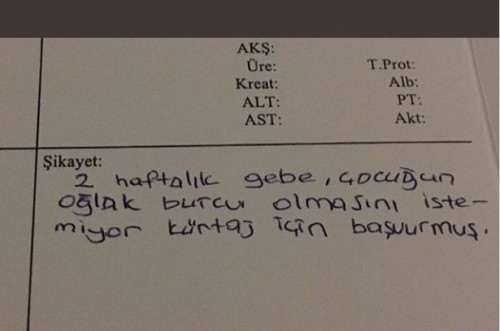 AKŞ:
Üre: T.Prot:
Kreat: Alb:
ALT: PT:
AST: Akt:
Şikayet:
2 haftalık gebe, çocuğun
oğlak burcu olmasını iste-
miyor kürtaj için başvurmuş.